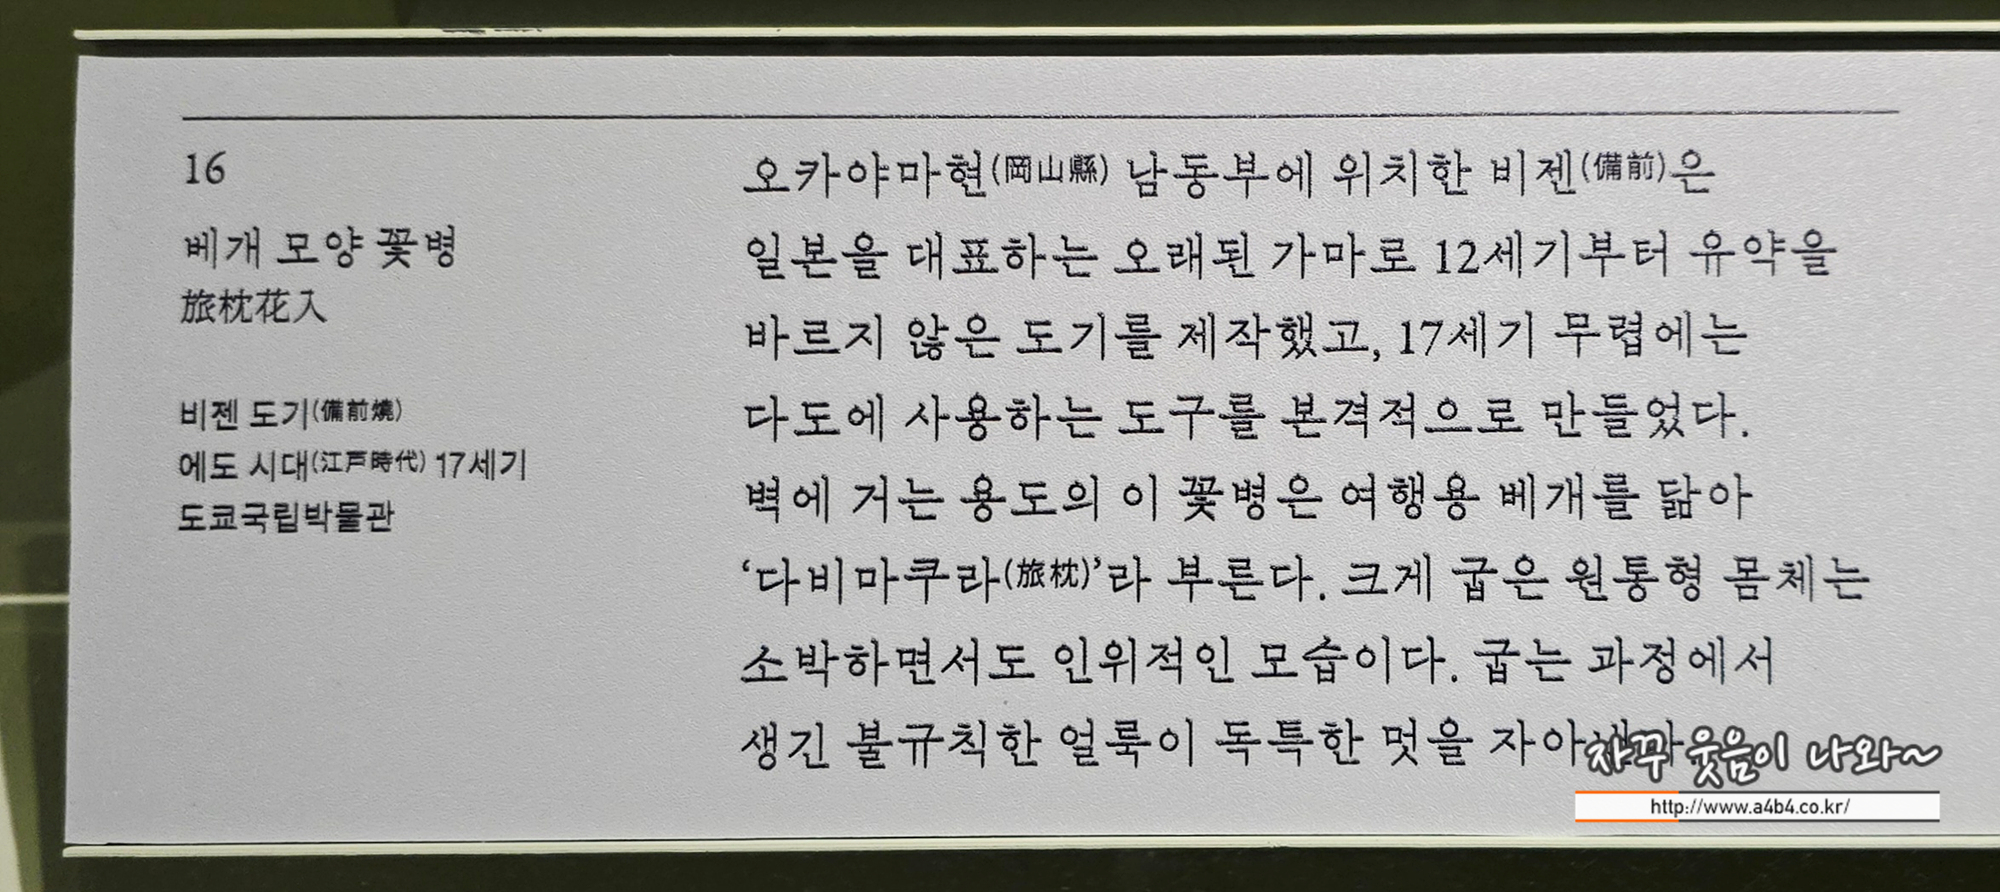 16
베개 모양 꽃병
旅枕花入
비젠 도기(備前燒)
에도 시대(江戸時代) 17세기
도쿄국립박물관
오카야마현(岡山縣) 남동부에 위치한 비젠(備前)은
일본을 대표하는 오래된 가마로 12세기부터 유약을
바르지 않은 도기를 제작했고, 17세기 무렵에는
다도에 사용하는 도구를 본격적으로 만들었다.
벽에 거는 용도의 이 꽃병은 여행용 베개를 닮아
‘다비마쿠라(旅枕)’라 부른다. 크게 굽은 원통형 몸체는
소박하면서도 인위적인 모습이다. 굽는 과정에서
생긴 불규칙한 얼룩이 독특한 멋을
자꾸 웃음이 나와~
http://www.a4b4.co.kr/